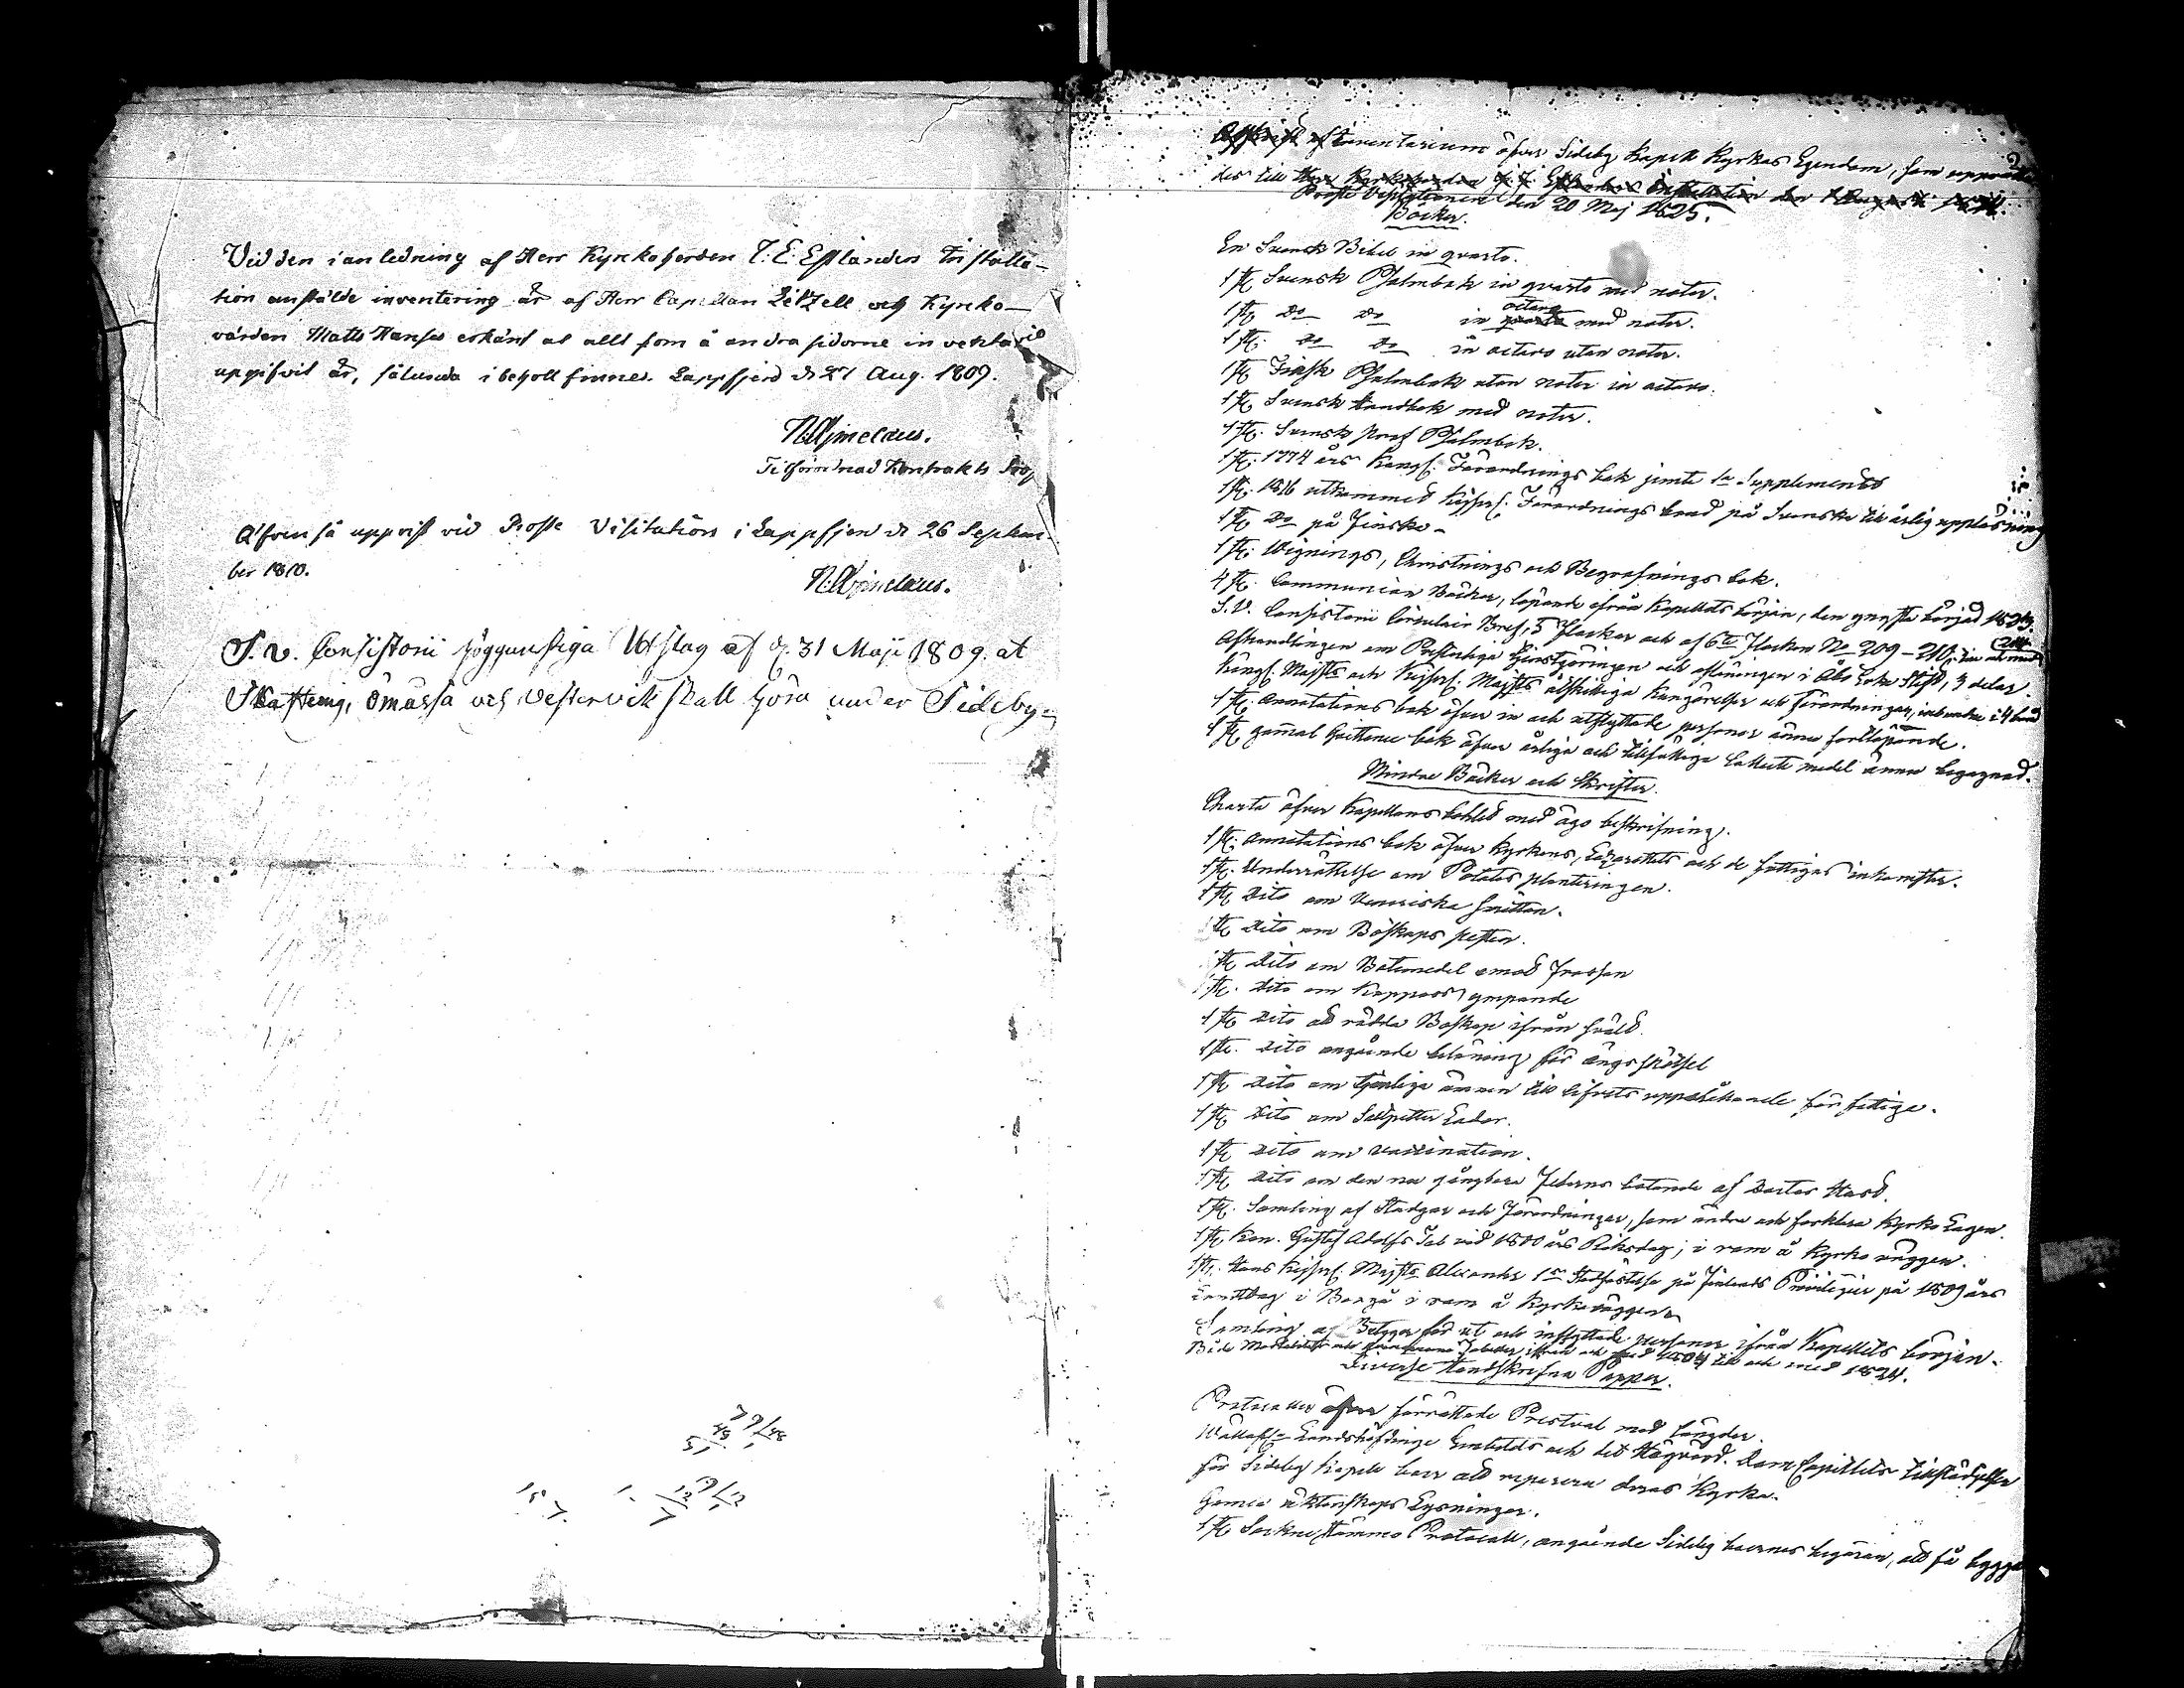 Vid den i anledning af Herr Kyrkoherden J. E. Estlanders Installa-
tion anstälde inventering är af Herr Capellan Zitzell och Kyrko-
värden Matts Hanses erkänt at allt som å andra sidorne inventarie
upgifvit är, sålunda i behåll finnes. Lappfjerd d 27 Aug. 1809.
Tilförordnad Kontrakts Pro
Äfven så upvist vid Prosts Visitation i Lappfjerd d 26 Septem-
ber 1810.
S. V. Consistorii höggunstiga Utslag af d. 31 Maji 1809. at
Skaftung, Ömossa och Vestervik skall höra under Sideby.
79/48
48
31
19/12
12
7
1.
15 7.
2
Afskrift af Inventarium öfver Sideby Kapell Kyrkas Egendom, som upprätta
des till
Prosts Visitationen den 20 Maj 1825.
Böcker.
En Svensk Bibel in quarto.
1 st. Svensk Psalmbok in quarto med noter.
octavo
1 st. Do Do in quarto med noter.
1 st. Do Do in octavo utan noter.
1 st. Finsk Psalmbok utan noter in octavo.
1 st. Svensk Handbok med noter.
1 st. Svensk Prof Psalmbok.
1 st. 1774 års Kongl. Förordnings bok jemte 1a Supplementet
1 st. 1816 utkommed Kejserl. Förordnings band på Svenska till årlig uppläsning
1 st. Do på Finska
1 st. Vignings, Christnings och Begrafnings bok.
4 st. Communion Böcker, löpande ifrån Kapellets början, den yngsta börjad
S. V. Consistorii Circulair Bref, 5 Flockar och af 6te Flocken No 209 - 210,
Afhandlingen om Presterliga Tjenstgöringen och aflöningen i Åbo Erke Stift, 3 delar.
Kongl. Majsts och Kejserl. Majsts åtskilliga Kungörelser och Förordningar, inbundna i 4 band
1 st. Annotations bok öfver in och utflyttade personer ännu fortlöpande.
1 st. gamal Quittence bok öfver årliga och tillfälliga Collecte medel ännu begagnad.
Mindre Böcker och Skrifter.
Charta öfver Kapellans bohled med ägo beskrifning.
1 st. Annotations bok öfver Kyrkans, Lazarettets och de fattigas inkomster.
1 st. Underrättelse om Potates planteringen.
1 st. Dito om Veneriska smittan.
1 st. Dito om Boskaps pesten.
1 st. Dito om Botemedel emot Frossan
1 st. Dito om Koppors ympande
1 st. Dito at rädda Boskap ifrån svält
1 st. Dito angående belöning för ängsskötsel
1 st. Dito om tjenliga ämnen till lifvets uppehållande för fattige.
1 st. Dito om Saltpetter Lador.
1 st. Dito om Vaccination.
1 st. Dito om den nu gångbara Feberns botande af Doctor Hast.
1 st. Samling af Stadgar och Förordningar, som ändra och förklara Kyrko Lagen.
1 st. Kon. Gustaf Adolfs Tal vid 1800 års Riksdag, i ram å Kyrko väggen.
1 st. Hans Kejserl. Majsts Alexander 1es Stadfästelse på Finlands Privilegier på 1809 års
Landtdag i Borgå i ram å Kyrkoväggen
Samling af Betyger för ut och inflyttade personer ifrån Kapellets början.
Både Mortalitets och Tabeller ifrån och med 1804 till och med 1824.
Diverse Handskrifna Papper.
Protocoller öfver förrättade Prestval med längder.
Landshöfdinge Embetets och det Högvörd. Dom Capitlets tillstådjelser
för Sideby Kapells boer att reparera deras Kyrka.
Gamla äktenskaps Lysningar.
1 st. Sockne stämmo Protocoll, angående Sideby boernes begäran, att få bygga